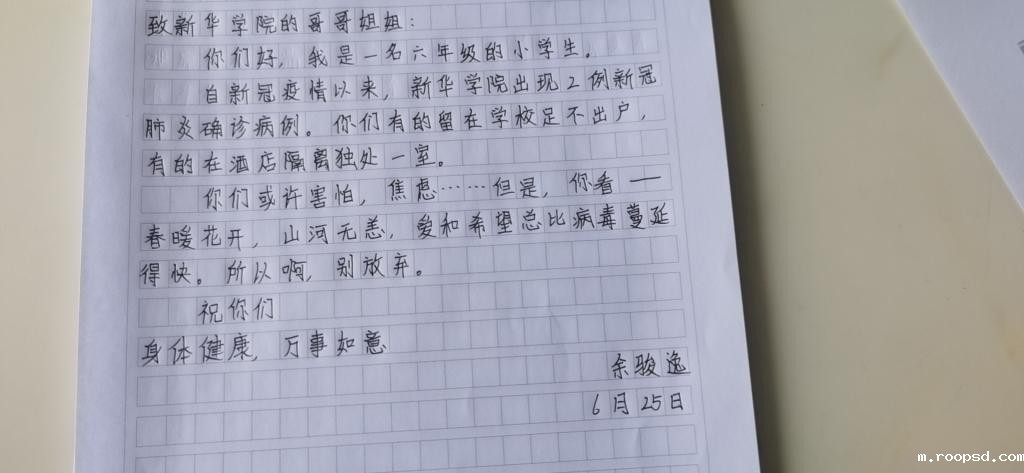 致新华学院的哥哥姐姐：
你们好，我是一名六年级的小学生。
自新冠疫情以来，新华学院出现2例新冠
肺炎确诊病例。你们有的留在学校足不出户，
有的在酒店隔离独处一室。
你们或许害怕，焦虑……但是，你看——
春暖花开，山河无恙，爱和希望总比病毒蔓延
得快。所以啊，别放弃。
祝你们
身体健康，万事如意
余骏逸
6月25日
m.roopsd.com